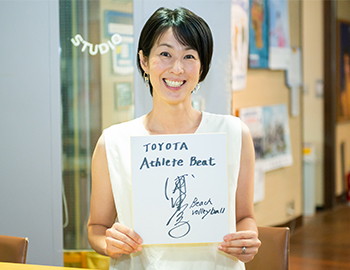 STUDIO
TOYOTA
Athlete Beat
Beach
volleyball